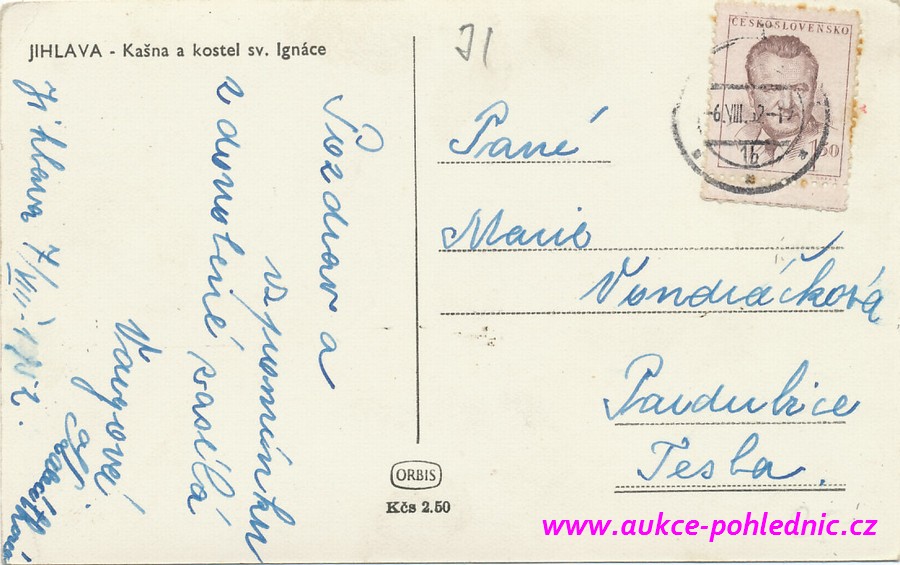 JIHLAVA - Kašna a kostel sv. Ignáce
Jihlava 7/VIII. 1952.
Pozdrav a
vzpomínku
z dovolené zasílá
Vávrová
JI
ČESKOSLOVENSKO
1.50
-6.VIII.52-12
1b
Paní
Marie
Vondráčková
Pardubice
Tesla.
ORBIS
Kčs 2.50
www.aukce-pohlednic.cz